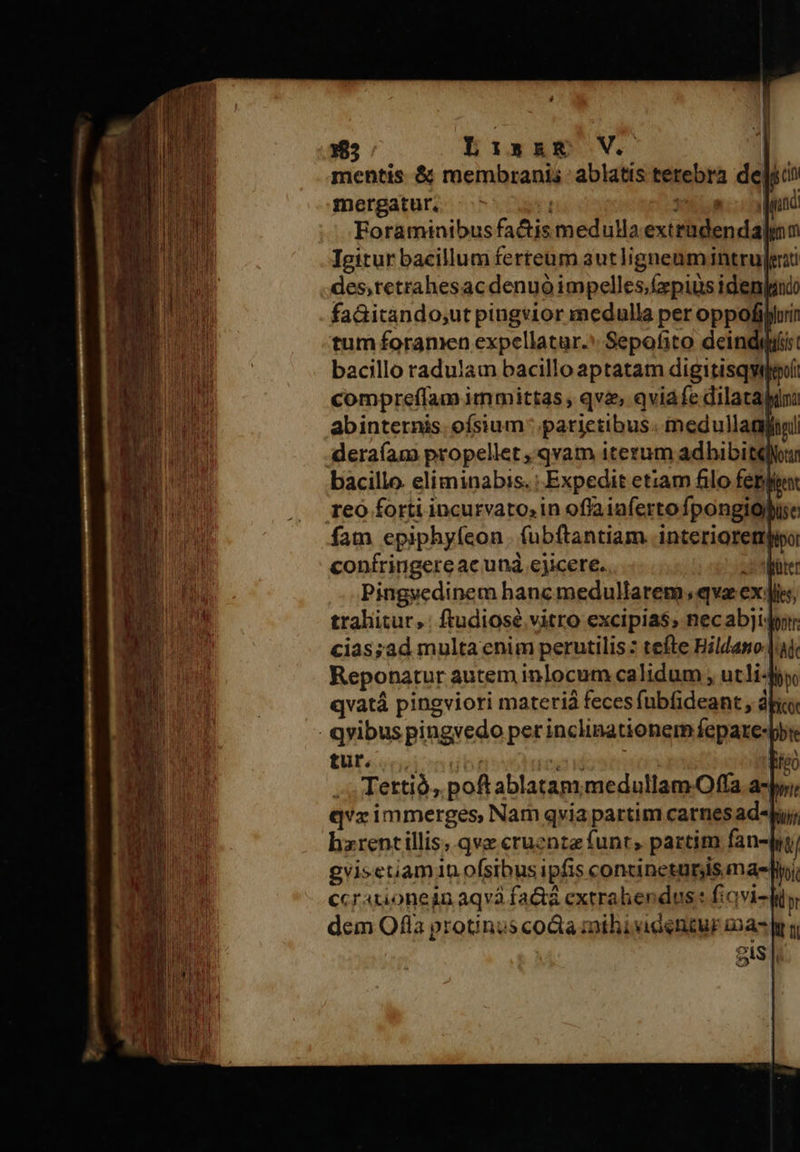 183 LIBER V.
mentis & membranis ablatis terebra de
mergatur.
Foraminibus factis medulla extrudenda
Igitur bacillum ferreum aut ligneum intru
des, retrahes ac denuò impelles, sæpiùs idem
factitando, ut pingvior medulla per oppofi
tum foramen expellatur. Sepofito deind
bacillo radulam bacillo aptatam digitisqve
compreſſam immittas, qvæ, qvia ſe dilata
ab internis oſsium parietibus medullam
deraſam propellet, qvam iterum adhibito
bacillo eliminabis. Expedit etiam filo fer
reo forti incurvato, in oſſa inſerto ſpongio
ſam epiphyſeon ſubſtantiam interiorem
confringere ac unà ejicere.
Pingvedinem hanc medullarem, qvæ ex
trahitur, ſtudiosè vitro excipias, nec abji
cias; ad multa enim perutilis: teſte Hildano
Reponatur autem in locum calidum, ut li-
qvatâ pingviori materiâ feces ſubſideant, à
qvibus pingvedo per inclinationem ſepare-
tur.
Tertiò, poſt ablatam medullam Oſſa a-
qvæ immerges, Nam qvia partim carnes ad-
hærent illis, qvæ cruentæ ſunt, partim ſan-
gvis etiam in oſsibus ipſis continetur, is ma-
cerationein aqvâ factâ extrahendus: ſiqvi-
dem Oſſa protinus cocta mihi videntur ma-
gis